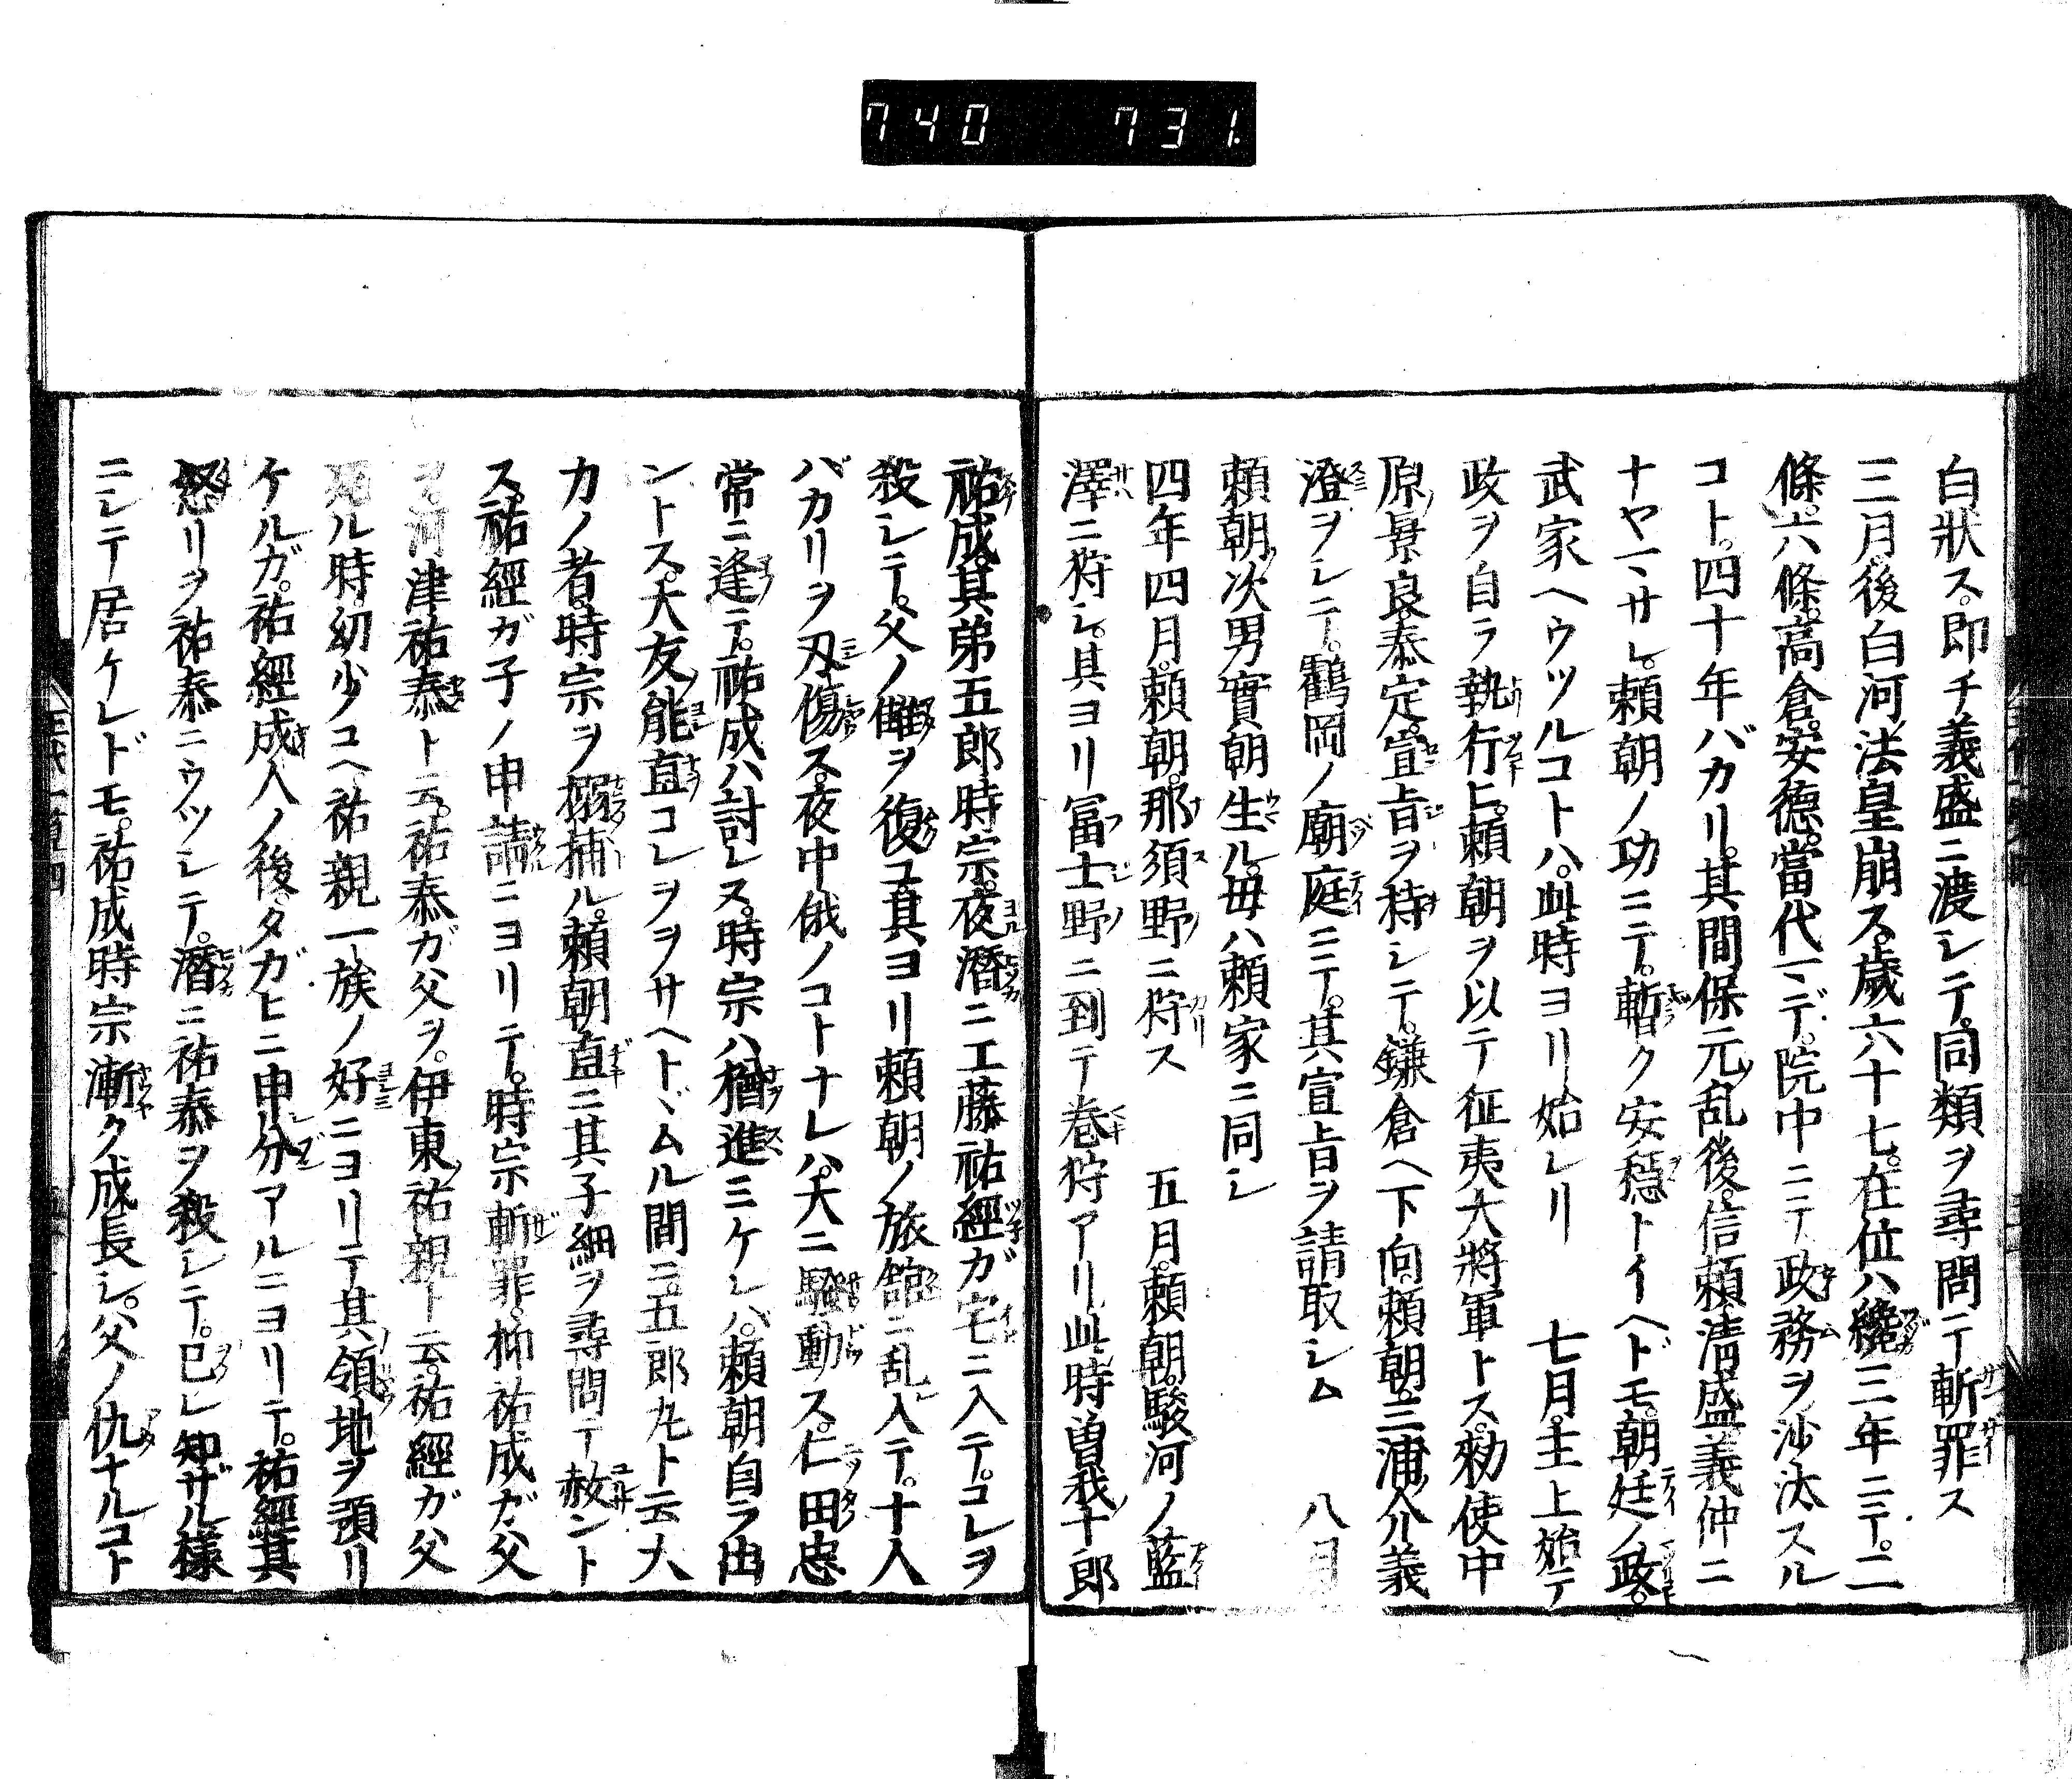 740 731.
白狀ス。即チ義盛ニ渡シテ。同類ヲ尋問テ斬罪ス
三月。後白河ノ法皇崩ス。歲六十七。在位ハ纔三年ニテ。二
條。六條。高倉。安徳。當代マデ。院中ニテ政務ヲ沙汰スル
コト。四十年バカリ。其間保元ノ乱後。信頼清盛義仲ニ
ナヤマサレ。頼朝ノ功ニテ。暫ク安穏トイヘドモ。朝廷ノ政。
武家ヘウツルコトハ。此時ヨリ始レリ 七月。主上始テ
政ヲ自ラ執行ヒ。頼朝ヲ以テ征夷大將軍トス。勅使中
原ノ景良。泰定。宣旨ヲ持シテ。鎌倉ヘ下向。頼朝。三浦ノ介義
澄ヲシテ。鶴岡ノ廟庭ニテ。其宣旨ヲ請取シム 八月
頼朝ノ次男實朝生ル。母ハ頼家ニ同シ
四年四月。頼朝。那須野ニ狩ス 五月。頼朝。駿河ノ藍
澤ニ狩シ。其ヨリ冨士野ニ到テ巻狩アリ。此時曽我ノ十郎
祐成。其弟五郎時宗。夜潜ニ工藤祐經ガ宅ニ入テ。コレヲ
殺シテ。父ノ讎ヲ復ユ。其ヨリ頼朝ノ旅舘ニ乱入テ。十人
バカリヲ刄傷ス。夜中俄ノコトナレハ。大ニ騒動ス。仁田忠
常ニ逢テ。祐成ハ討レヌ。時宗ハ猶進ミケレバ。頼朝自ラ出
ントス。大友ノ能直コレヲヲサヘトヾムル間ニ。五郎丸ト云大
力ノ者。時宗ヲ搦捕ル。頼朝直ニ其子細ヲ尋問テ赦ント
ス。祐經ガ子ノ申請ニヨリテ。時宗斬罪。抑祐成ガ父
ヲ。河津祐泰ト云。祐泰ガ父ヲ。伊東ノ祐親ト云。祐經ガ父
死ル時。幼少ユヘ。祐親一族ノ好ニヨリテ其領地ヲ預リ
ケルガ。祐經成人ノ後。タガヒニ申分アルニヨリテ。祐經其
怒リヲ祐泰ニウツシテ。潜ニ祐泰ヲ殺シテ。已レ知ザル様
ニシテ居ケレドモ。祐成時宗漸ク成長シ。父ノ仇ナルコト